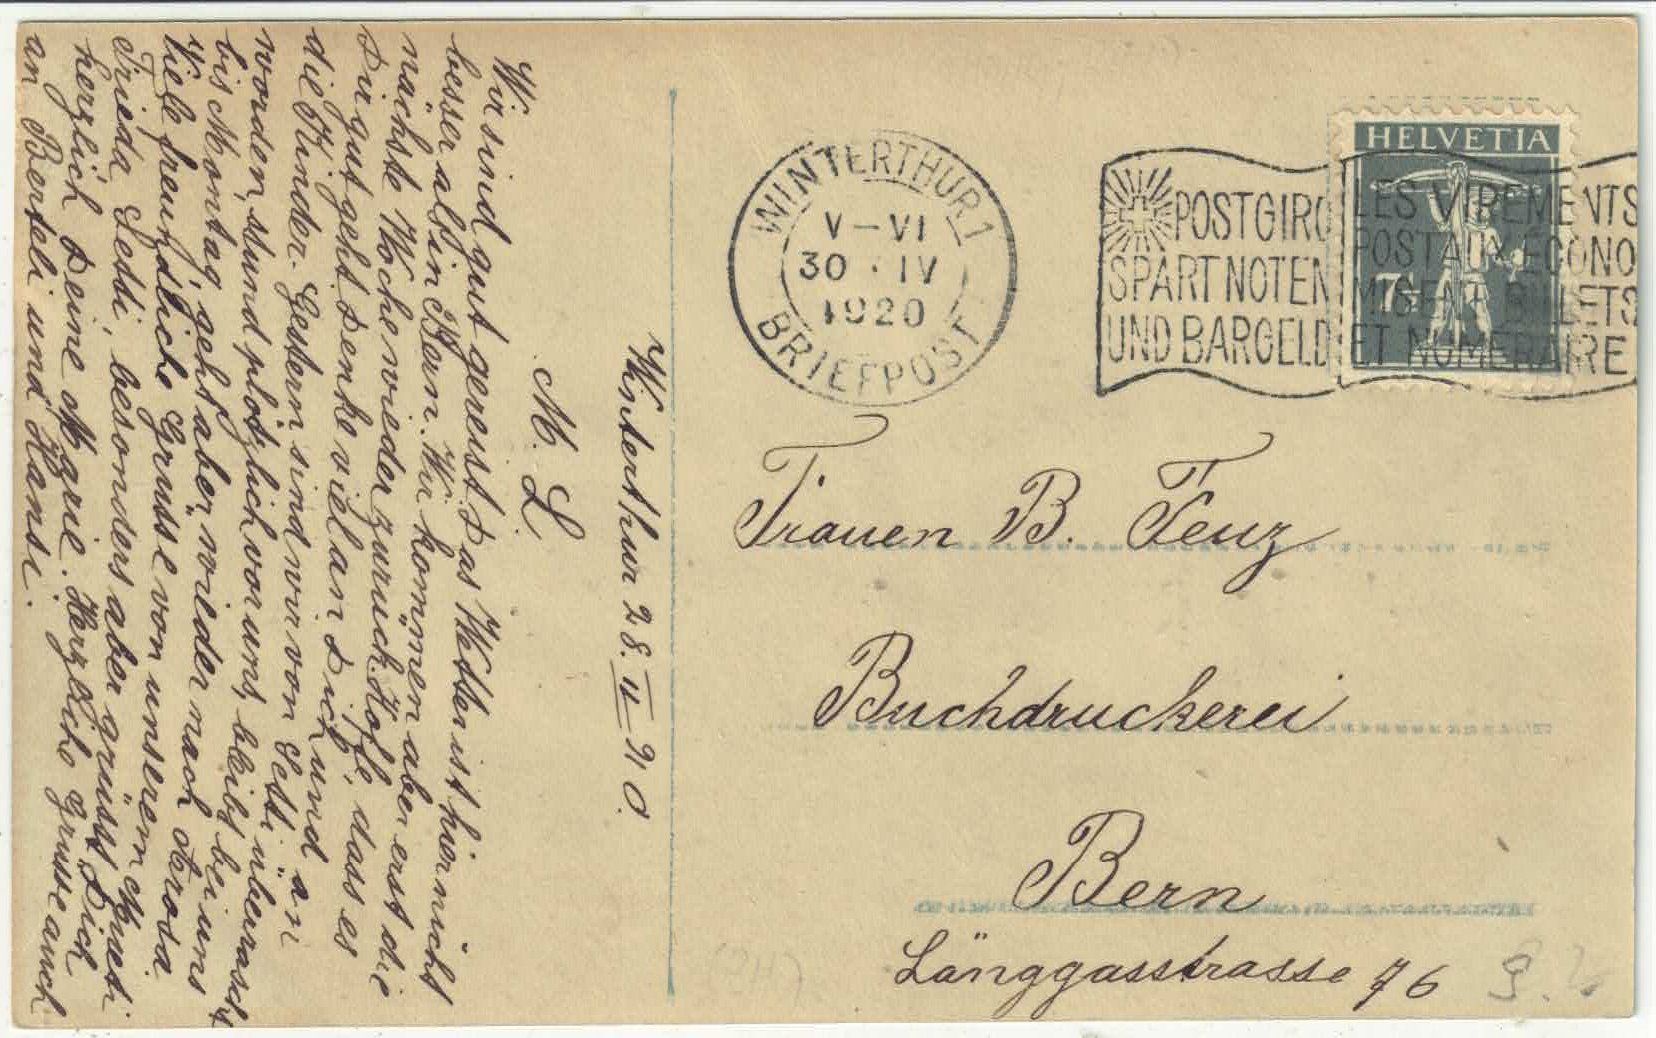 Winterthur 28. II 20.
M. L.
Wir sind gut gereist. Das Wetter ist hier nicht
besser als in Bern. Wir kommen aber erst die
nächste Woche wieder zurück. Hoffe, dass es
Dir gut geht. Denke viel an Dich und an
die Kinder. Gestern sind wir von Setti überrascht
worden, stund plötzlich vor uns, bleibt bei uns
bis Montag, geht aber wieder nach Arosa.
Viele freundliche Grüsse von unserem Mueti
Frieda Setti, besonders aber grüsst Dich
herzlich Deine Marie. Herzliche Grüsse auch
an Berteli und Hansi.
WINTERTHUR 1
V-VI
30 · IV
1920
BRIEFPOST
POSTGIRO
SPART NOTEN
UND BARGELD
LES VIREMENTS
POSTAUX ÉCONO
MISENT BILLETS
ET NUMÉRAIRE
HELVETIA
7½
Frauen B. Feuz
Buchdruckerei
Bern
Länggasstrasse 76
(ZH)